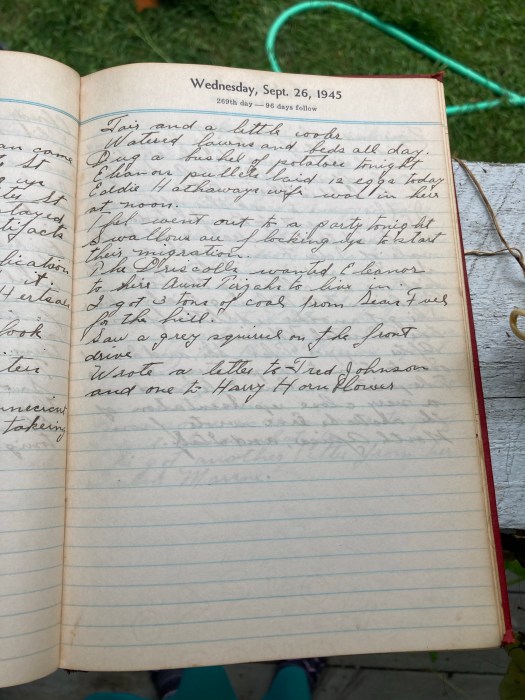 Wednesday, Sept. 26, 1945
269th day — 96 days follow
Fair and a little cooler
Watered lawns and beds all day.
Dug a bushel of potatoes tonight
Eleanors pullets laid 12 eggs today
Eddie Hathaways wife was in here
at noon.
went out to a party tonight
Swallows are flocking up to start
their migration.
The Driscolls wanted Eleanor
to hire Aunt to live in.
I got 3 tons of coal from Sears Fuel
for the hill.
Saw a grey squirrel on the front
drive
Wrote a letter to Fred Johnson
and one to Harry Hornblower
an came
St
up
St
stayed
tifacts
lication
it.
look
ten
taking